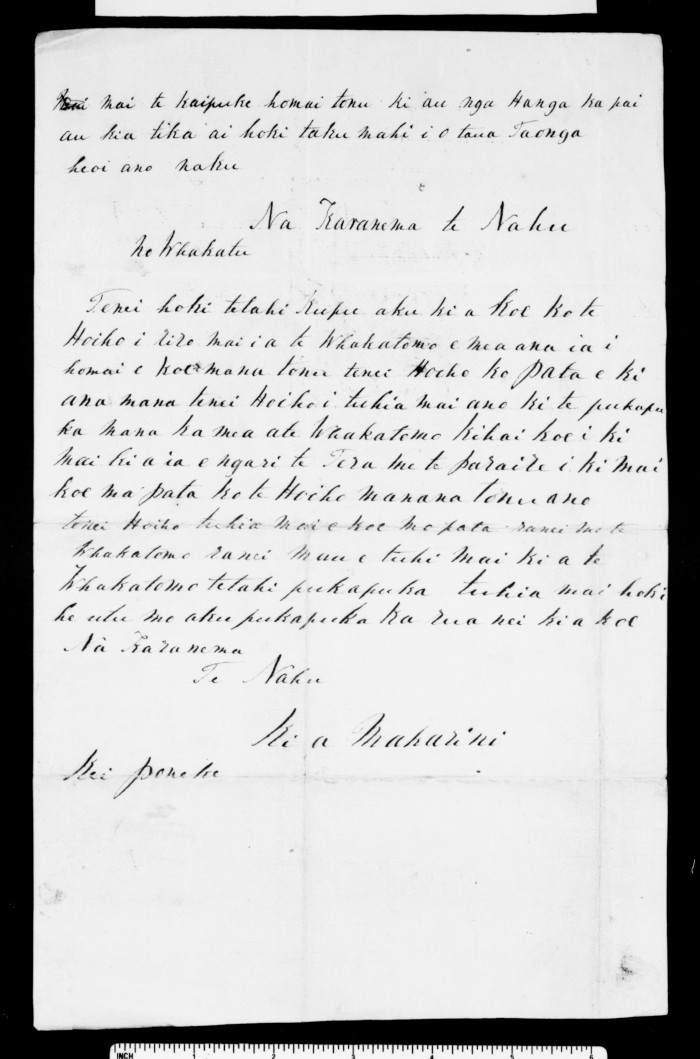 mai te kaipuke homai tonu ki au nga Hanga ka pai
au kia tika ai hoki taku mahi i o taua Taonga
heoi ano naku
Na Karanema te Nahu
No Whakatu
Tenei hoki tetahi kupu aku ki a koe ko te
Hoiho i riro mai i a te Whakatomo e mea ana ia i
homai e koe mana tonu tenei Hoiho ko pata e ki
ana mana tenei Hoiho i tuhia mai ano ki te pukapu
ka mana ka mea a te Whakatomo kihai koe i ki
mai ki a ia e ngari te Tera me te paraire i ki mai
koe ma pata ko te Hoiho manana tonu ano
tenei Hoiho tuhia mai e koe mo pata ranei mo te
Whakatomo ranei mau e tuhi mai ki a te
Whakatomo tetahi pukapuka tuhia mai hoki
he utu mo aku pukapuka ka rua nei ki a koe
Nà Karanema
Te Nahu
Ki a Makarini
Kei poneke
INCH 1 2 3 4 5 6